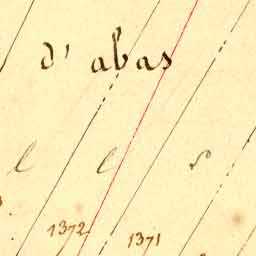 d' abas
l l s
1372
1371